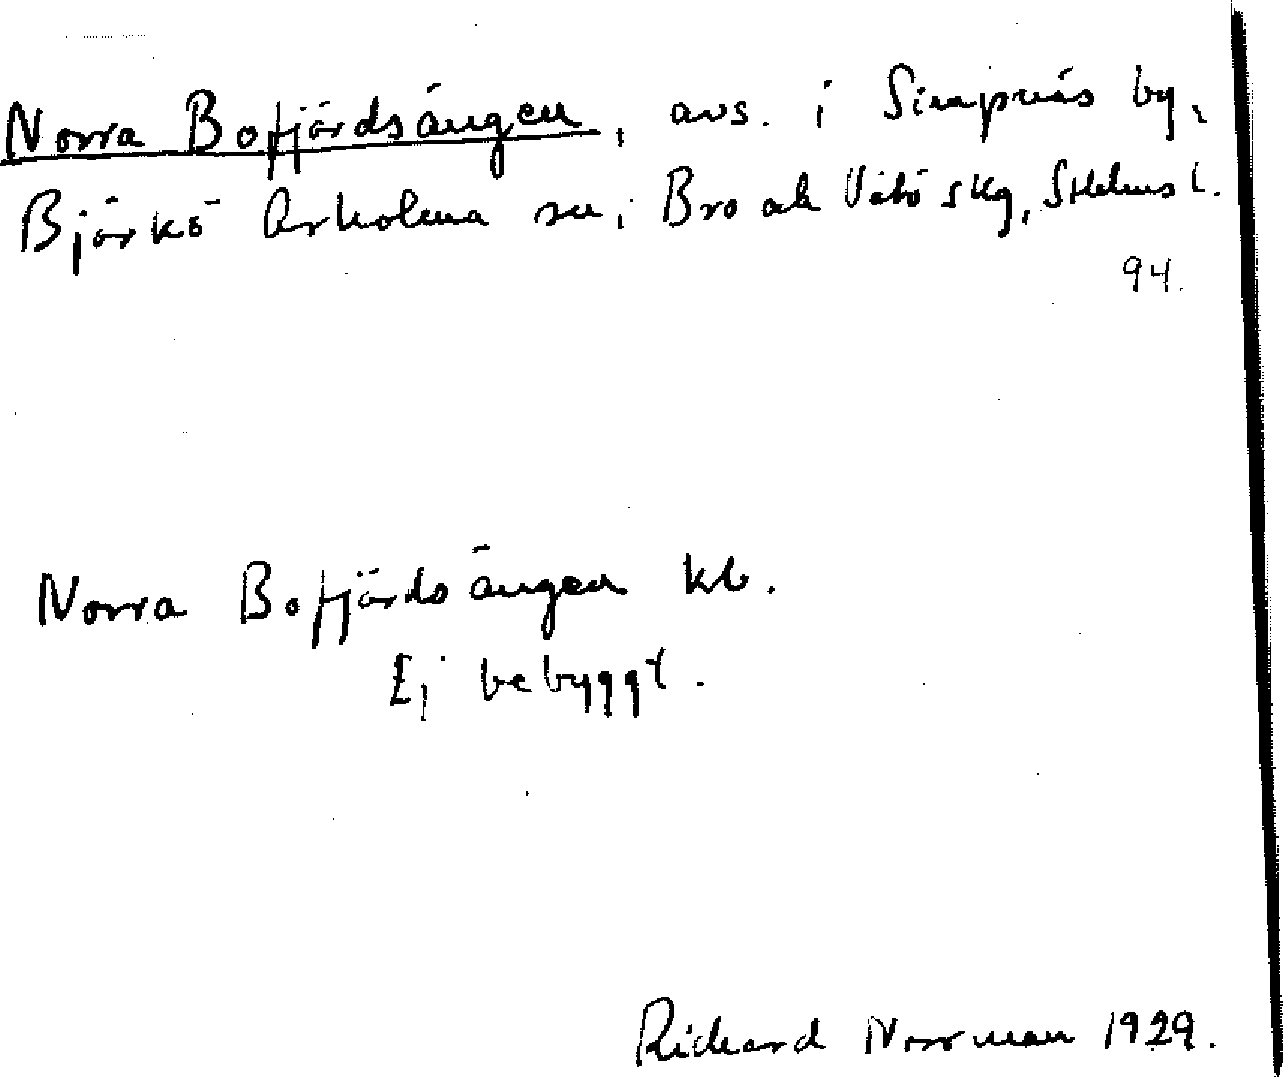 Norra Bofjärdsängen, avs. i Simpnäs by,
Björkö Arholma sn, Bro ok Vätö skg, Sthlms l.
94.
Norra Bofjärdsängen kb.
Ej bebyggt.
Richard Norrman 1929.